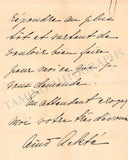 répondre au plus
tôt et surtout de
vouloir bien faire
pour moi ce que je
vous demande.
En attendant croyez
moi votre très dévouée
Aïno Ackté